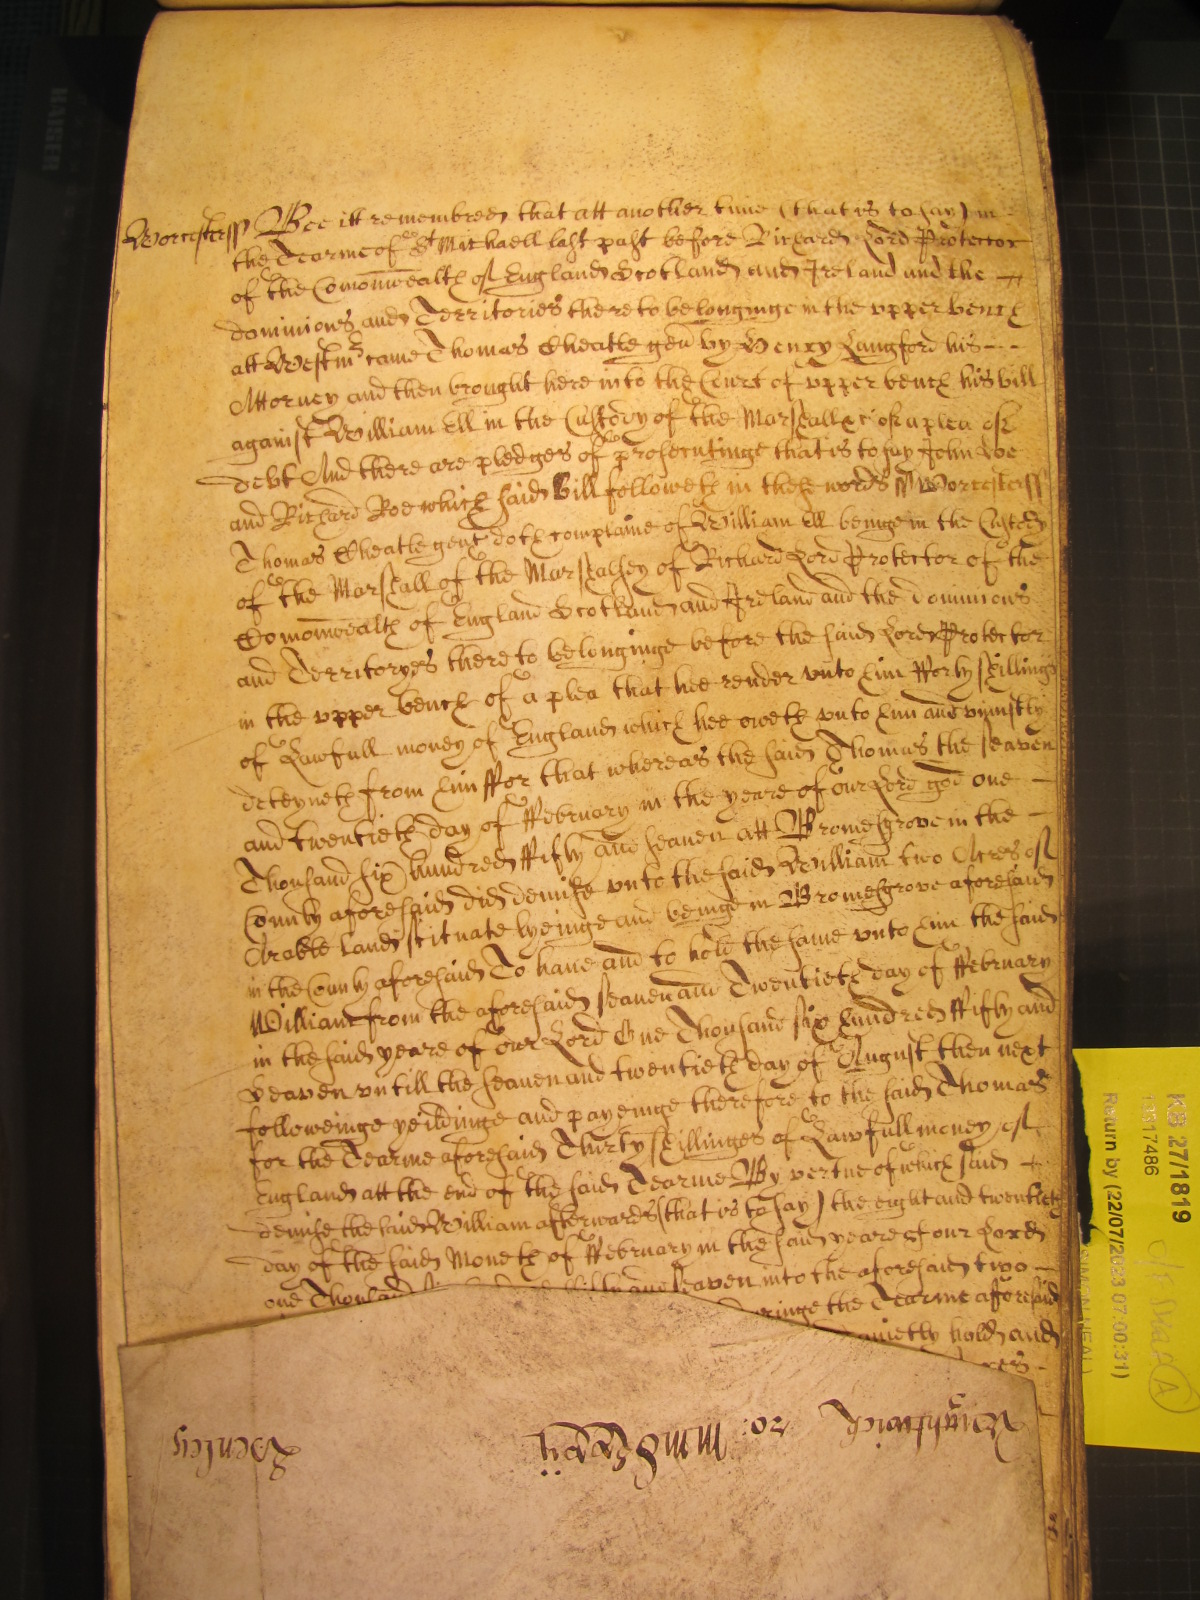 Worcesterss Bee itt remembred that att another time (that is to say) in
the Tearme of St Michaell last past before Richard Lord Protector
of the Comonwealth of England Scotland and Ireland and the
dominions and Territories thereto belonginge in the upper bench
att Westmr came Thomas Cheatle gen by Henry Langford his
Attorney and then brought here into the Court of upper bench his bill
against William Ell in the Custody of the Marshall &c of a plea of
debt And there are pledges of prosecutinge that is to say John Doe
and Richard Roe which said bill followeth in these words ss Worcesterss
Thomas Cheatle gent doth complaine of William Ell beinge in the Custody
of the Marshall of the Marshalsey of Richard Lord Protector of the
Comonwealth of England Scotland and Ireland and the dominions
and Territoryes thereto belonginge before the said Lord Protector
in the upper bench of a plea that hee render unto him fforty shillings
of Lawfull money of England which hee oweth unto him and uniustly
deteyneth from him ffor that whereas the said Thomas the seaven
and twentieth day of ffebruary in the yeare of our Lord god one
Thousand six hundred ffifty and seaven att Bromesgrove in the
County aforesaid did demise unto the said William two Acres of
Arable land scituate lyeinge and beinge in Bromesgrove aforesaid
in the County aforesaid To have and to hold the same unto him the said
William from the aforesaid seaven and Twentieth day of ffebruary
in the said yeare of our Lord One Thousand six hundred ffifty and
Seaven untill the seaven and twentieth day of August then next
followeinge yeildinge and payeinge therefore to the said Thomas
for the Tearme aforesaid Thirty shillinges of Lawfull money of
England att the end of the said Tearme By vertue of which said
demise the said William afterwards (that is to say) the eight and twentieth
day of the said Moneth of ffebruary in the said yeare of our Lord
one Thousand ffifty and seaven into the aforesaid two
duringe the Tearme aforesaid
quietly hold and
KB 27/1819
11317486
Return by (22/07/2023 07:00:31)
A
Henley